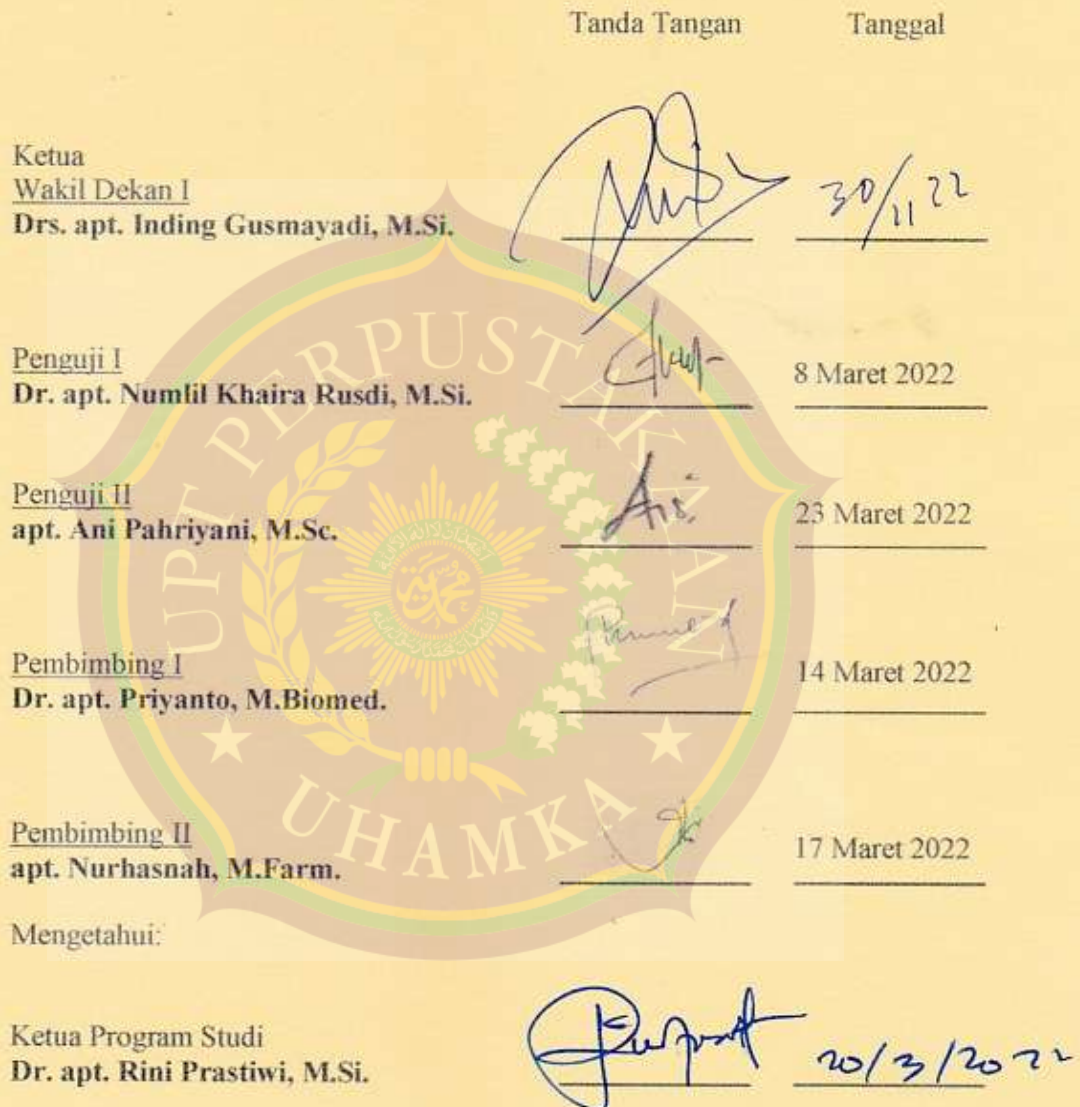 Tanda Tangan Tanggal
Ketua
Wakil Dekan I
Drs. apt. Inding Gusmayadi, M.Si. 30/11 22
Penguji I
Dr. apt. Numlil Khaira Rusdi, M.Si. 8 Maret 2022
Penguji II
apt. Ani Pahriyani, M.Sc. 23 Maret 2022
Pembimbing I
Dr. apt. Priyanto, M.Biomed. 14 Maret 2022
Pembimbing II
apt. Nurhasnah, M.Farm. 17 Maret 2022
Mengetahui:
Ketua Program Studi
Dr. apt. Rini Prastiwi, M.Si. 20/3/2022
UPT PERPUSTAKAAN
UHAMKA